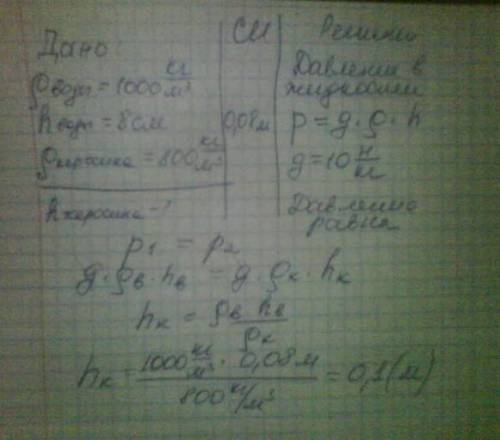 Дано:
ρводы = 1000 кг/м³
hводы = 8 см
ρкеросина = 800 кг/м³
hкеросина - ?
СИ
0,08 м
Решение
Давление в
жидкости
p = g · ρ · h
g = 10 Н/кг
Давление
равны
p₁ = p₂
g · ρв · hв = g · ρк · hк
hк = ρв hв / ρк
hк = 1000 кг/м³ · 0,08 м / 800 кг/м³ = 0,1 (м)